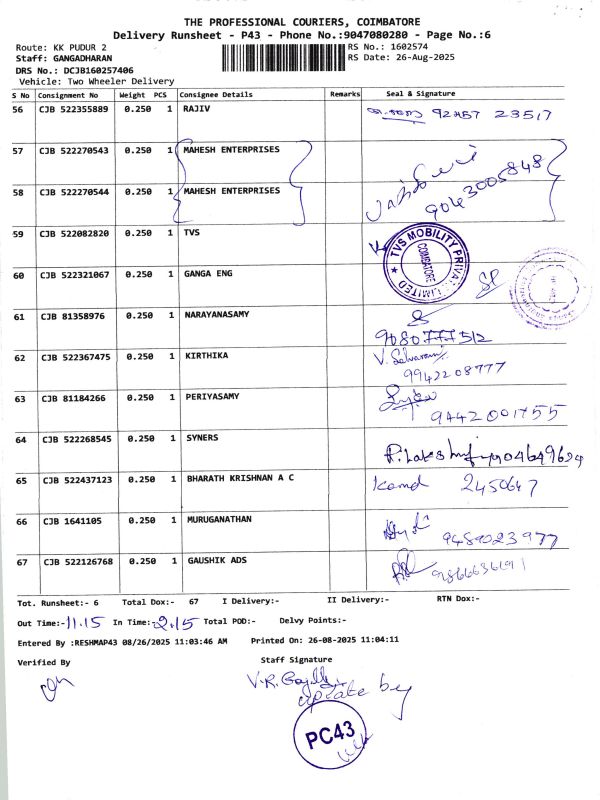 THE PROFESSIONAL COURIERS, COIMBATORE
Delivery Runsheet - P43 - Phone No.:9047080280 - Page No.:6
Route: KK PUDUR 2 RS No.: 1602574
Staff: GANGADHARAN RS Date: 26-Aug-2025
DRS No.: DCJB160257406
Vehicle: Two Wheeler Delivery
S No Consignment No Weight PCS Consignee Details Remarks Seal & Signature
56 CJB 522355889 0.250 1 RAJIV 23517
57 CJB 522270543 0.250 1 MAHESH ENTERPRISES
58 CJB 522270544 0.250 1 MAHESH ENTERPRISES 9043005848
59 CJB 522082820 0.250 1 TVS
TVS MOBILITY PRIVATE LIMITED
COIMBATORE
60 CJB 522321067 0.250 1 GANGA ENG
61 CJB 81358976 0.250 1 NARAYANASAMY
9080777512
62 CJB 522367475 0.250 1 KIRTHIKA V. Selvarani
9942208777
63 CJB 81184266 0.250 1 PERIYASAMY
9442001755
64 CJB 522268545 1 0.250 SYNERS
65 CJB 522437123 0.250 1 BHARATH KRISHNAN A C 2450647
66 CJB 1641105 0.250 1 MURUGANATHAN
9489023977
67 CJB 522126768 0.250 1 GAUSHIK ADS
Tot. Runsheet:- 6 Total Dox:- 67 I Delivery:- II Delivery:- RTN Dox:-
Out Time:-11.15 In Time:-2.15 Total POD:- Delvy Points:-
Entered By :RESHMAP43 08/26/2025 11:03:46 AM Printed On: 26-08-2025 11:04:11
Verified By Staff Signature
update by
PC43